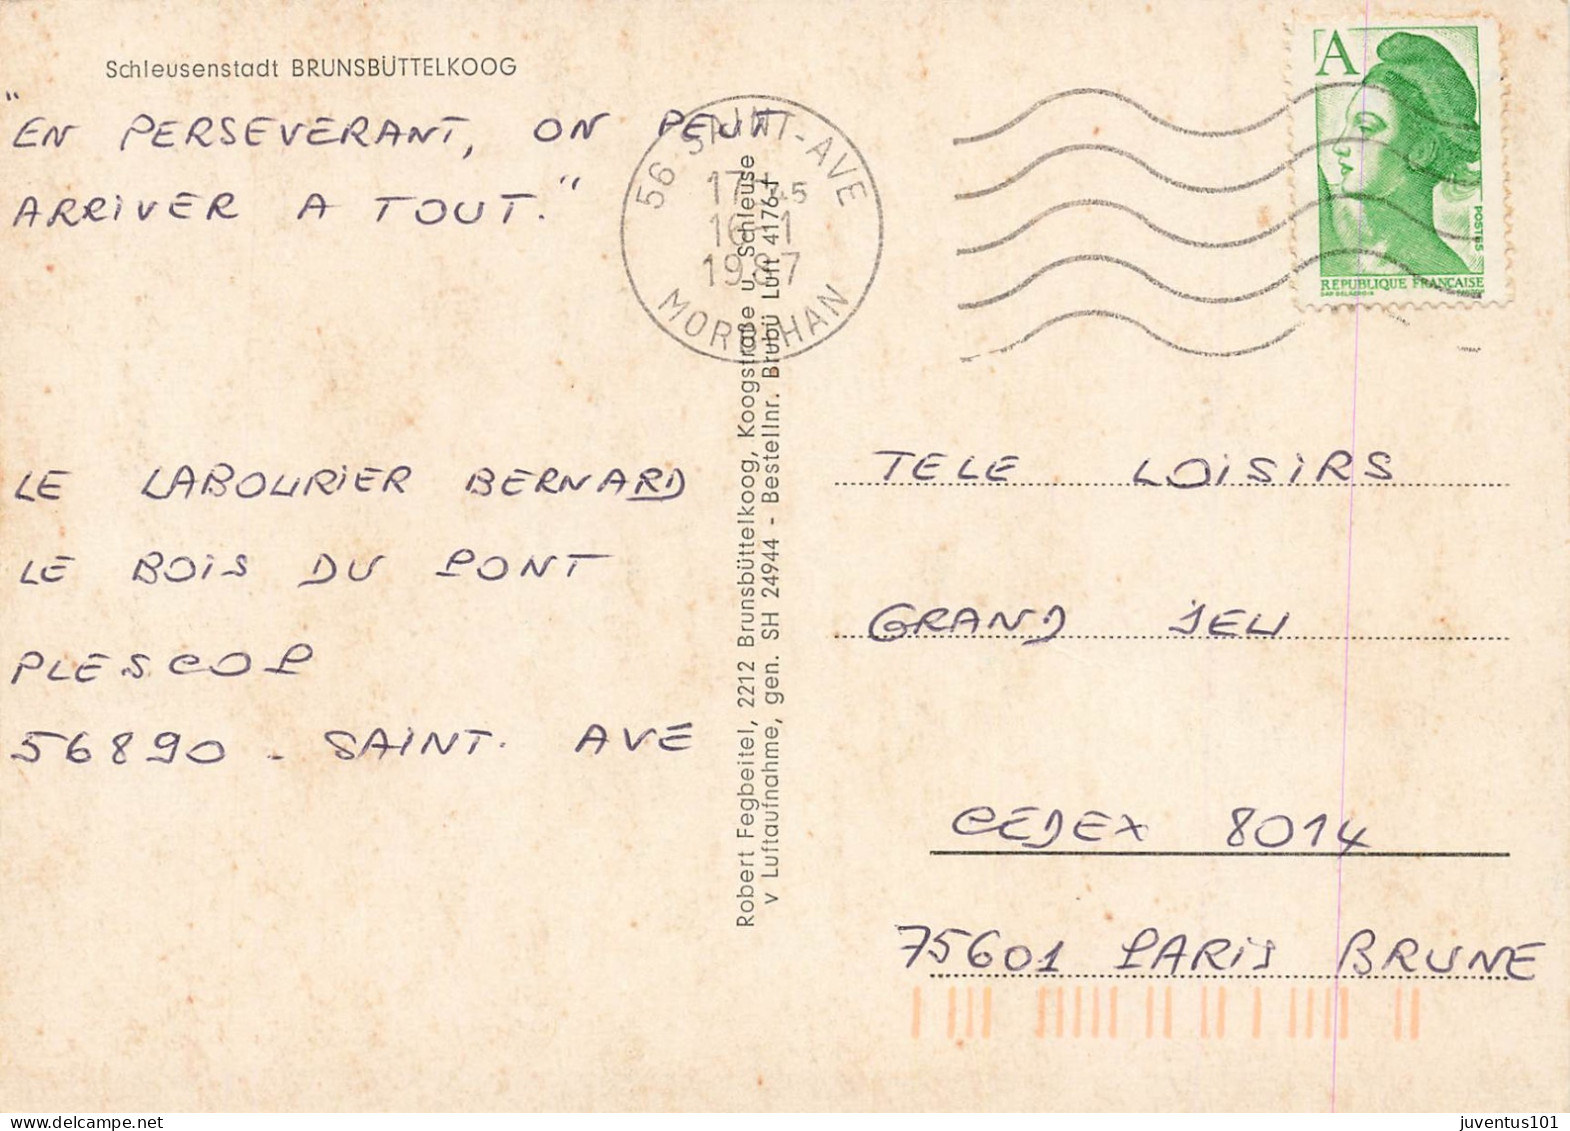 Schleusenstadt BRUNSBÜTTELKOOG
"EN PERSEVERANT, ON PEUT
ARRIVER A TOUT."
56 SAINT-AVE
16-1
1987
MORBIHAN
A
POSTES
REPUBLIQUE FRANÇAISE
LE LABOURIER BERNARD
LE BOIS DU PONT
PLESCOP
56890 - SAINT. AVE
Robert Fegbeitel, 2212 Brunsbüttelkoog, Koogstraße u. Schleuse
v Luftaufnahme, gen. SH 24944 - Bestellnr. Brubü Luft 4176-T
TELE LOISIRS
GRAND JEU
CEDEX 8014
75601 PARIS BRUNE
juventus101